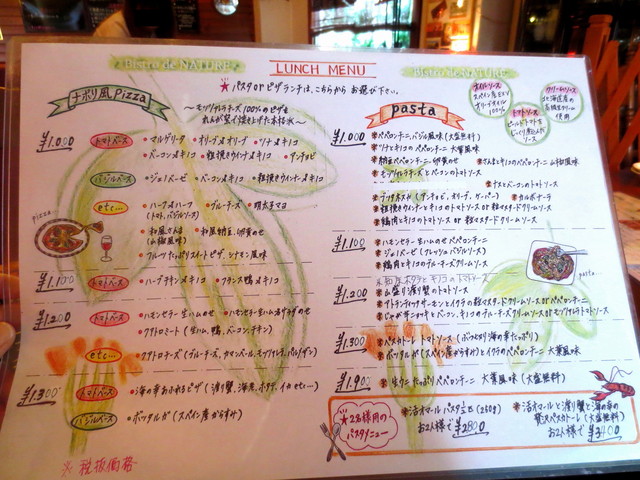 Bistro de NATURE
LUNCH MENU
Bistro de NATURE
★パスタ or ピザランチは、こちらから お選び下さい。
ナポリ風 Pizza
～モッツァレラチーズ100%のピザを
¥1.000
トマトベース
・マルゲリータ ・オリーブ&オリーブ ・ツナ&キノコ
・ベーコン&キノコ ・粗挽きウインナー&キノコ ・アンチョビ
バジルベース
・ジェノベーゼ ・ベーコン&キノコ ・粗挽きウインナー&キノコ
etc...
・ハーフ&ハーフ ・ブルーチーズ ・明太子マヨ
(トマト,バジルソース)
・和風さんま ・和風納豆、卵黄のせ
(山椒風味)
・フルーツたっぷりスイートピザ、シナモン風味
pizza
¥1.100
トマトベース
・ハーブチキン&キノコ ・フランス鴨&キノコ
¥1.200
トマトベース
・ハモンセラー生ハムのせ ・ハモンセラー生ハムサラダのせ
・クアトロミート (生ハム, 鴨, ベーコン, チキン)
etc...
・クアトロチーズ (ブルーチーズ, カマンベール, モッツァレラ, パルメザン)
¥1.300
トマトベース
・海の幸あふれるピザ (渡り蟹, 海老, ホタテ, イカ etc...)
バジルベース
・ボッタルガ (スペイン産からすみ)
※ 税抜価格
オイルソース
スペイン産EXV
オリーブオイル
100%
トマトソース
ソース
クリームソース
北海道産の
高級生クリーム
使用
pasta
¥1.000
＊ペペロンチーニ, バジル風味 (大盛無料)
＊ツナとキノコのペペロンチーニ 大葉風味
＊納豆ペペロンチーニ, 卵黄のせ
＊さんまとキノコのペペロンチーニ 山椒風味
＊モッツァレラチーズとベーコンのトマトソース
＊ナスとベーコンのトマトソース
＊プッタネスカ (アンチョビ, オリーブ, ケーパー)
＊カルボナーラ
＊粗挽きウインナーとキノコのトマトソース or 粒マスタードクリームソース
＊鶏肉とキノコのトマトソース or 粒マスタードクリームソース
¥1.100
＊ハモンセラー生ハムのせ ペペロンチーニ
＊ジェノベーゼ (フレッシュバジルソース)
＊鶏肉とキノコのブルーチーズクリームソース
pasta
¥1.200
トマトソース
＊山盛り渡り蟹のトマトソース
＊アトランティックサーモンとイクラの粒マスタードクリームソース or ペペロンチーニ
＊じゃが芋ニョッキとベーコン, キノコのブルーチーズクリームソース or モッツァレラトマトソース
¥1.300
＊ペスカトーレ トマトソース (ポつと切り 海の幸たっぷり)
＊ボッタルガ (スペイン産からすみ) とイクラのペペロンチーニ 大葉風味
¥1.900
＊生ウニたっぷりペペロンチーニ 大葉風味 (大盛無料)
★2名様用の
パスタメニュー
＊活オマールパスタ 1匹 (260g)
お2人様で ¥2800
＊活オマールと渡り蟹と海の幸の
贅沢ペスカトーレ (大盛無料)
お2人様で ¥3400